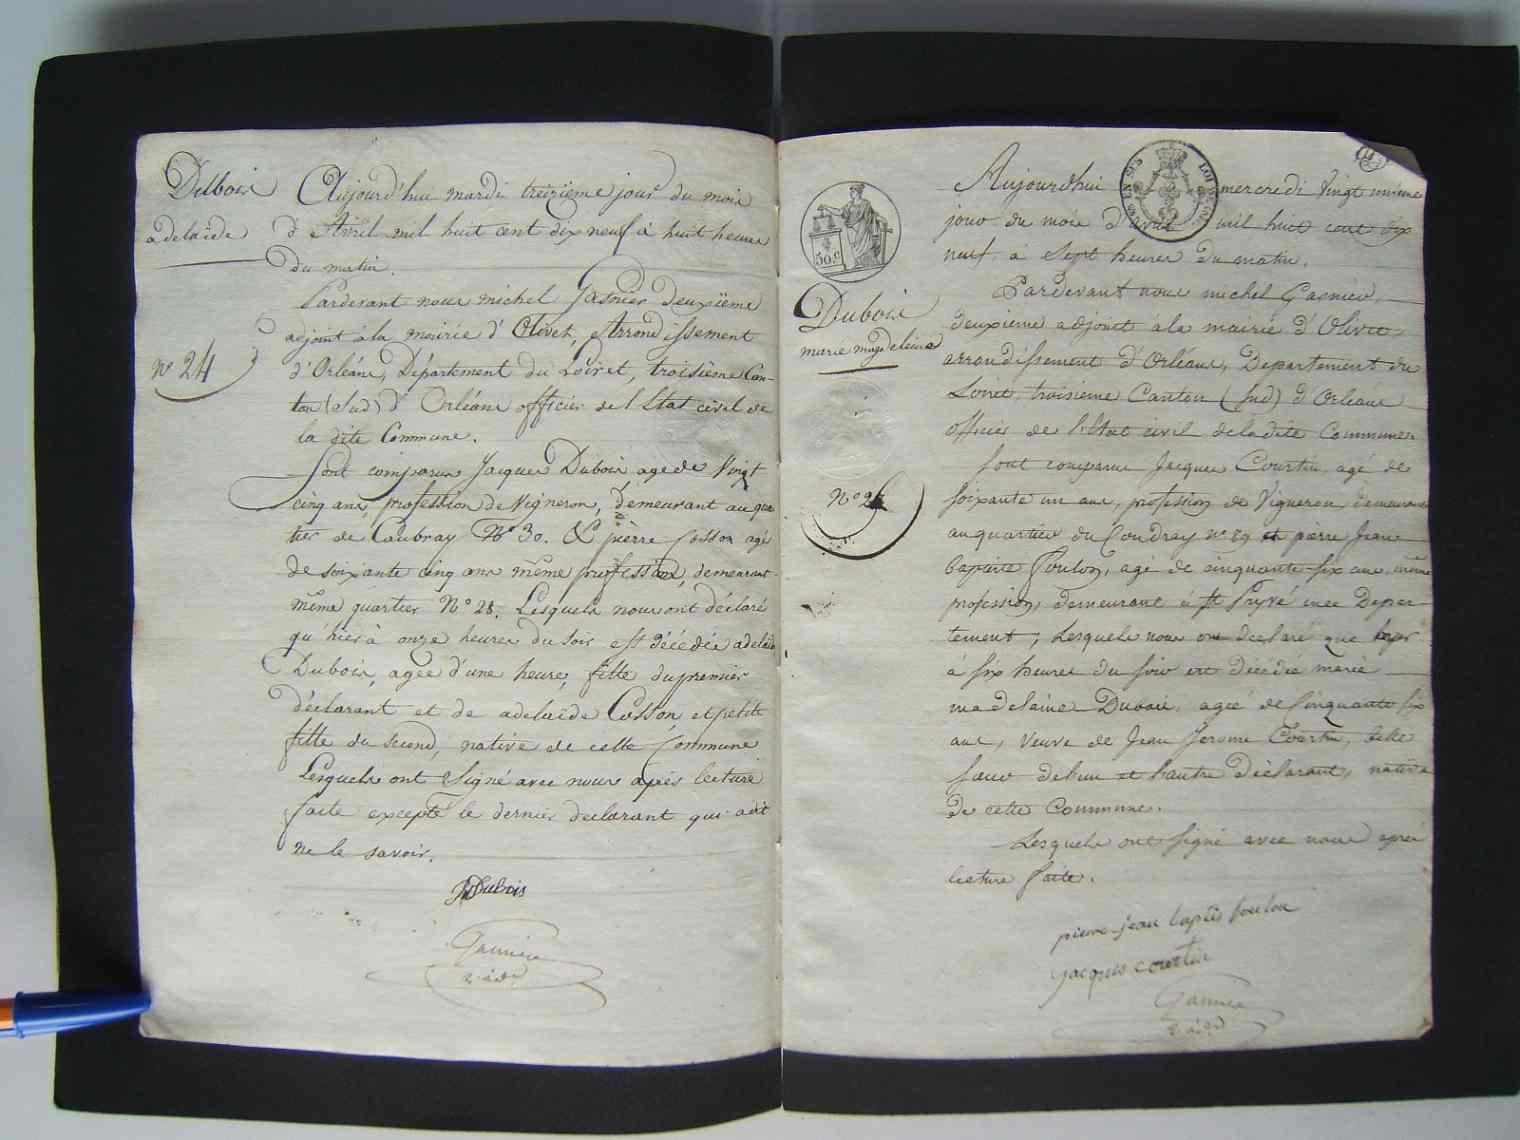 Dubois
adelaïde
n° 24
Aujourd'hui mardi treizième jour du mois
d'Avril mil huit cent dix neuf à huit heures
du matin.
Pardevant nous michel Gasnier deuxième
adjoint à la mairie d'Olivet, Arrondissement
d'Orléans, Département du Loiret, troisième Can-
ton (Sud) d'Orléans officier de l'Etat civil de
la dite Commune.
Sont comparus Jacques Dubois age de Vingt
cinq ans, profession de Vigneron, demeurant au quar
tier de Caubray N° 30. & pierre Cosson agé
de soixante cinq ans même profession, demeurant
même quartier N° 28. Lesquels nous ont déclaré
qu'hier à onze heures du soir est décédée adelaïde
Dubois, agée d'une heure, fille du premier
déclarant et de adelaïde Cosson, et petite
fille du second, native de cette Commune
Lesquels ont Signé avec nous après lecture
faite excepté le dernier declarant qui a dit
ne le savoir.
Dubois
Gasnier
2. adt
50 c.
Dubois
marie magdeleine
N° 25
Aujourdhui mercredi Vingt unieme
jour du mois d'avril mil huit cent dix
neuf, à Sept heures du matin.
Pardevant nous michel Gasnier,
deuxieme adjoint à la mairie d'Olivet,
arrondissement d'Orléans, Departement du
Loiret, troisieme Canton (Sud) d'Orléans
officier de l'Etat civil de ladite Commune.
Sont comparus Jacques Courtin, agé de
soixante un ans, profession de Vigneron demeurant
au quartier du Coudray n° 89 et pierre Jean
baptiste Foulon, agé de cinquante six ans, même
profession, demeurant à St Pryvé mee Depar-
tement, Lesquels nous ont declaré que hyer
à six heures du soir est décédée marie
madelaine Dubois, agée de Cinquante six
ans, Veuve de Jean Jerome Courtin, belle
soeur de l'un et l'autre declarant, native
de cette Commune.
Lesquels ont signé avec nous après
lecture faite.
pierre-jean baptis foulon
jacques courtin
Gasnier
2. adt